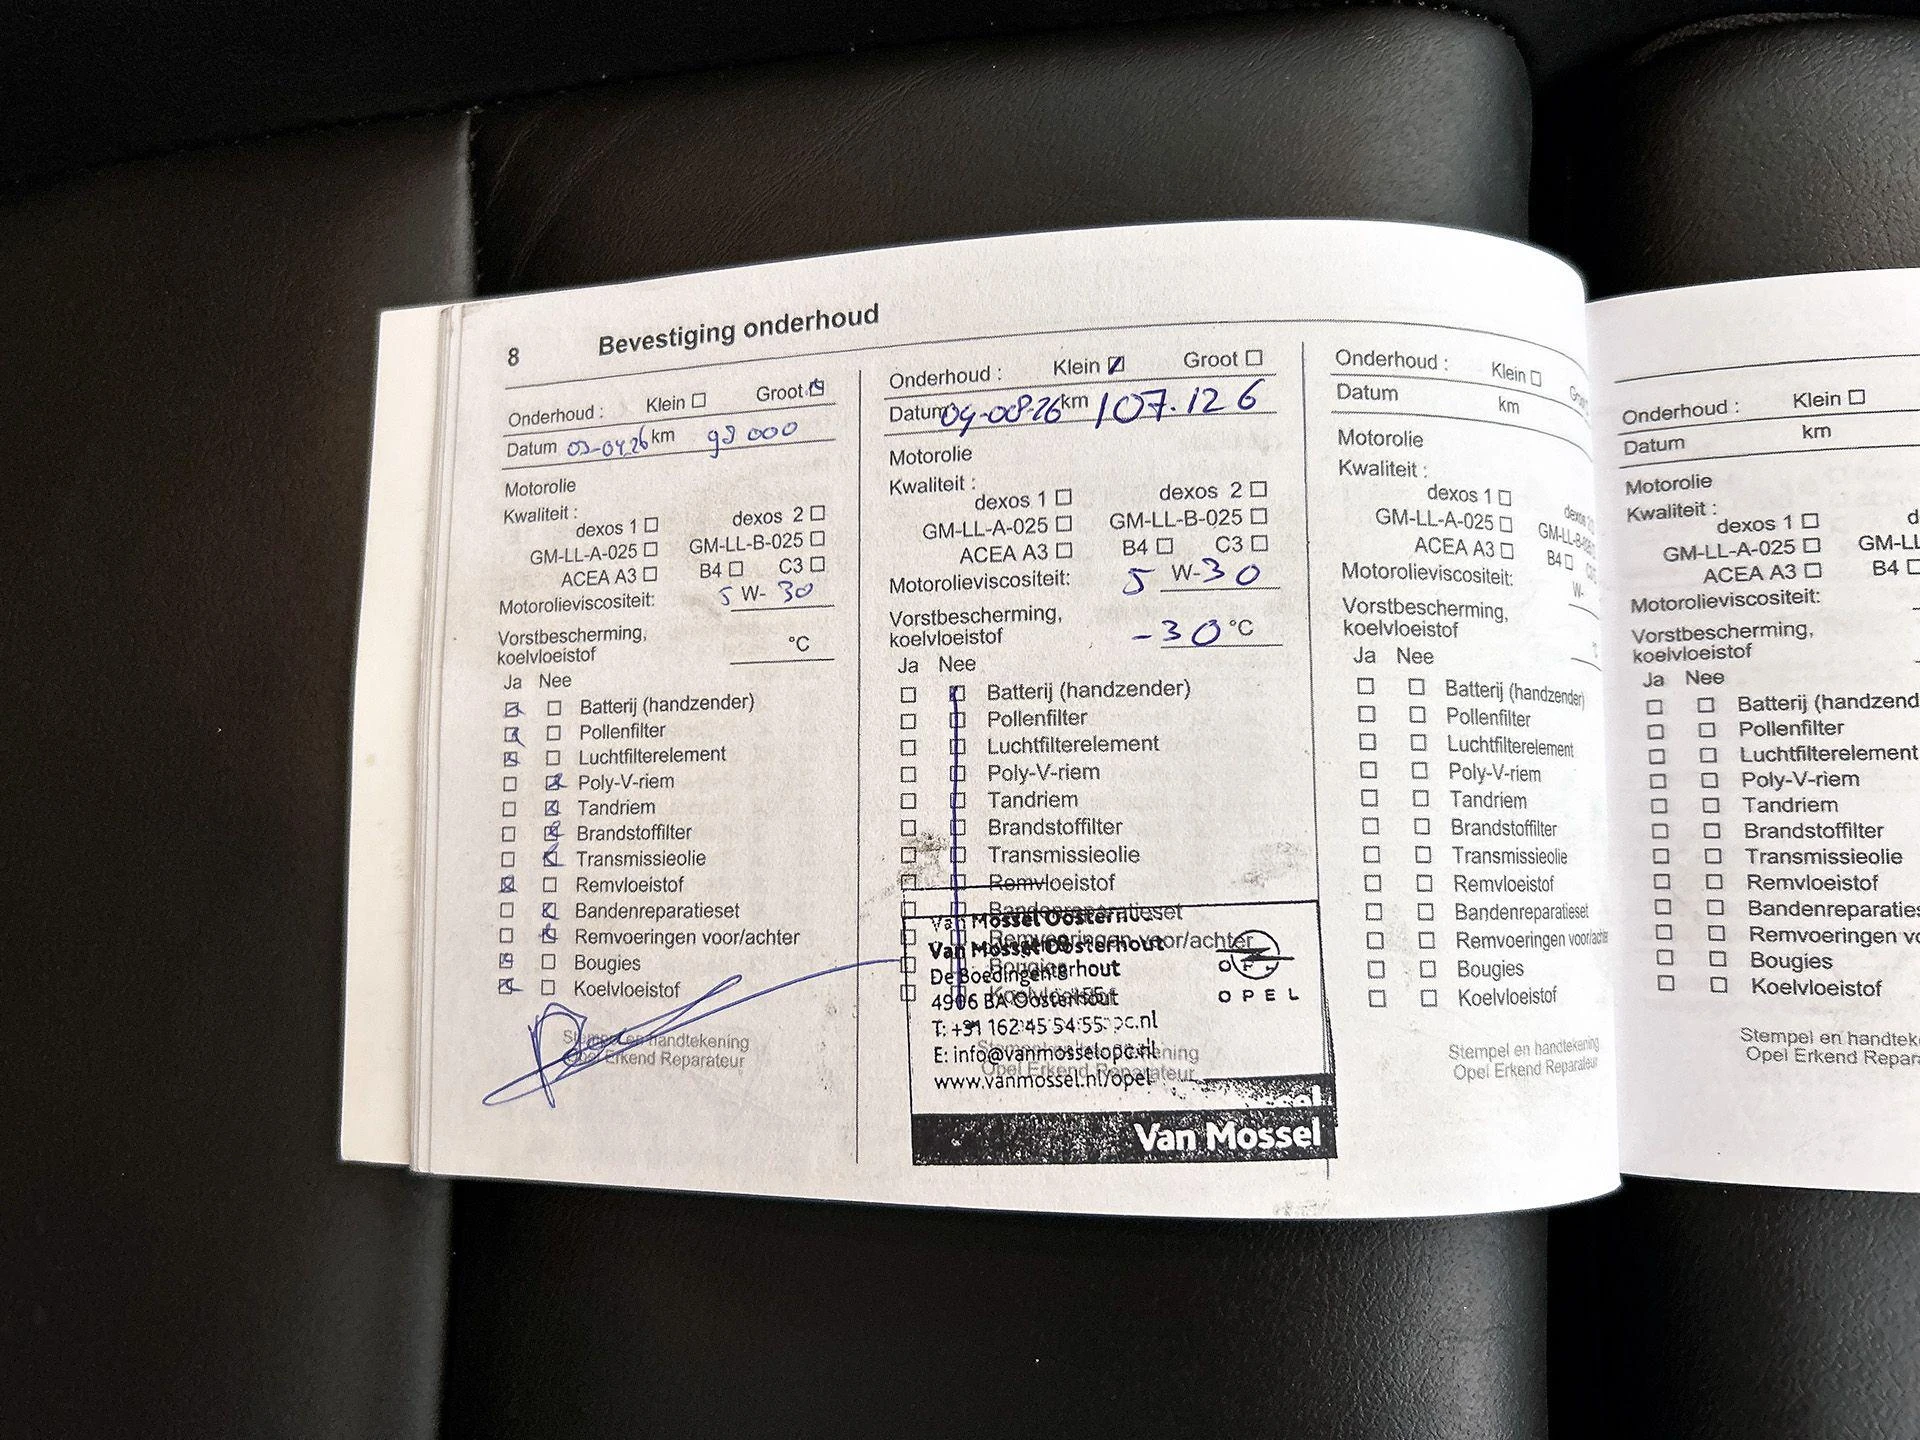 8 Bevestiging onderhoud
Onderhoud : Klein Groot
Datum km 98 000
Motorolie
Kwaliteit :
dexos 1 dexos 2
GM-LL-A-025 GM-LL-B-025
ACEA A3 B4 C3
Motorolieviscositeit: 5 W- 30
Vorstbescherming,
koelvloeistof °C
Ja Nee
Batterij (handzender)
Pollenfilter
Luchtfilterelement
Poly-V-riem
Tandriem
Brandstoffilter
Transmissieolie
Remvloeistof
Bandenreparatieset
Remvoeringen voor/achter
Bougies
Koelvloeistof
Stempel en handtekening
Opel Erkend Reparateur
Onderhoud : Klein Groot
Datum 04-08-26 km 107.126
Motorolie
Kwaliteit :
dexos 1 dexos 2
GM-LL-A-025 GM-LL-B-025
ACEA A3 B4 C3
Motorolieviscositeit: 5 W-30
Vorstbescherming,
koelvloeistof -30 °C
Ja Nee
Batterij (handzender)
Pollenfilter
Luchtfilterelement
Poly-V-riem
Tandriem
Brandstoffilter
Transmissieolie
Remvloeistof
Bandenreparatieset
Remvoeringen voor/achter
Van Mossel Oosterhout
De Boedingen 8
4906 BA Oosterhout
T: +31 162 45 54 55
E: info@vanmosselopc.nl
www.vanmossel.nl/opel
OPEL
Van Mossel
Onderhoud : Klein
Datum km
Motorolie
Kwaliteit :
dexos 1
GM-LL-A-025
ACEA A3 B4
Motorolieviscositeit: W-
Vorstbescherming,
koelvloeistof
Ja Nee
Batterij (handzender)
Pollenfilter
Luchtfilterelement
Poly-V-riem
Tandriem
Brandstoffilter
Transmissieolie
Remvloeistof
Bandenreparatieset
Remvoeringen voor/achter
Bougies
Koelvloeistof
Stempel en handtekening
Opel Erkend Reparateur
Onderhoud : Klein
Datum km
Motorolie
Kwaliteit :
dexos 1 d
GM-LL-A-025 GM-LL
ACEA A3 B4
Motorolieviscositeit:
Vorstbescherming,
koelvloeistof
Ja Nee
Batterij (handzend
Pollenfilter
Luchtfilterelement
Poly-V-riem
Tandriem
Brandstoffilter
Transmissieolie
Remvloeistof
Bandenreparaties
Remvoeringen vo
Bougies
Koelvloeistof
Stempel en handteke
Opel Erkend Repara